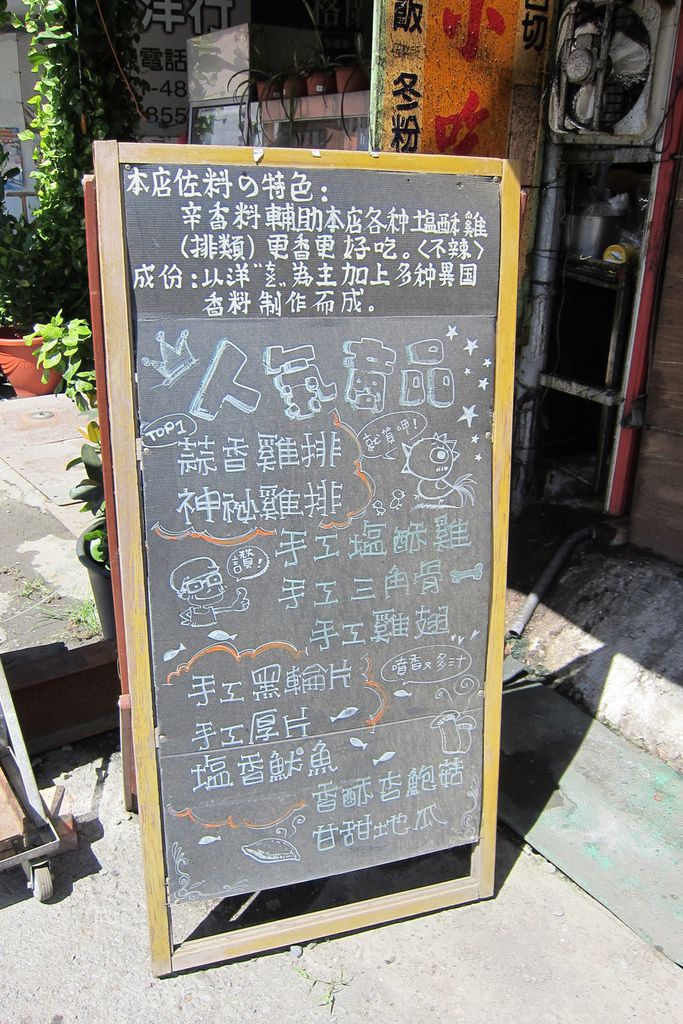 洋行
電話
-48
855
飯
冬粉
小吃
切
本店佐料の特色：
辛香料輔助本店各种塩酥雞
(排類)更香更好吃。<不辣>
成份：以洋"莖"為主加上多种異国
香料制作而成。
人氣商品
TOP1
蒜香雞排
就買呷!
神祕雞排
手工塩酥雞
讚!
手工三角骨
手工雞翅
手工黑輪片
噴香又多汁
手工厚片
塩香魷魚
香酥杏鮑菇
甘甜地瓜